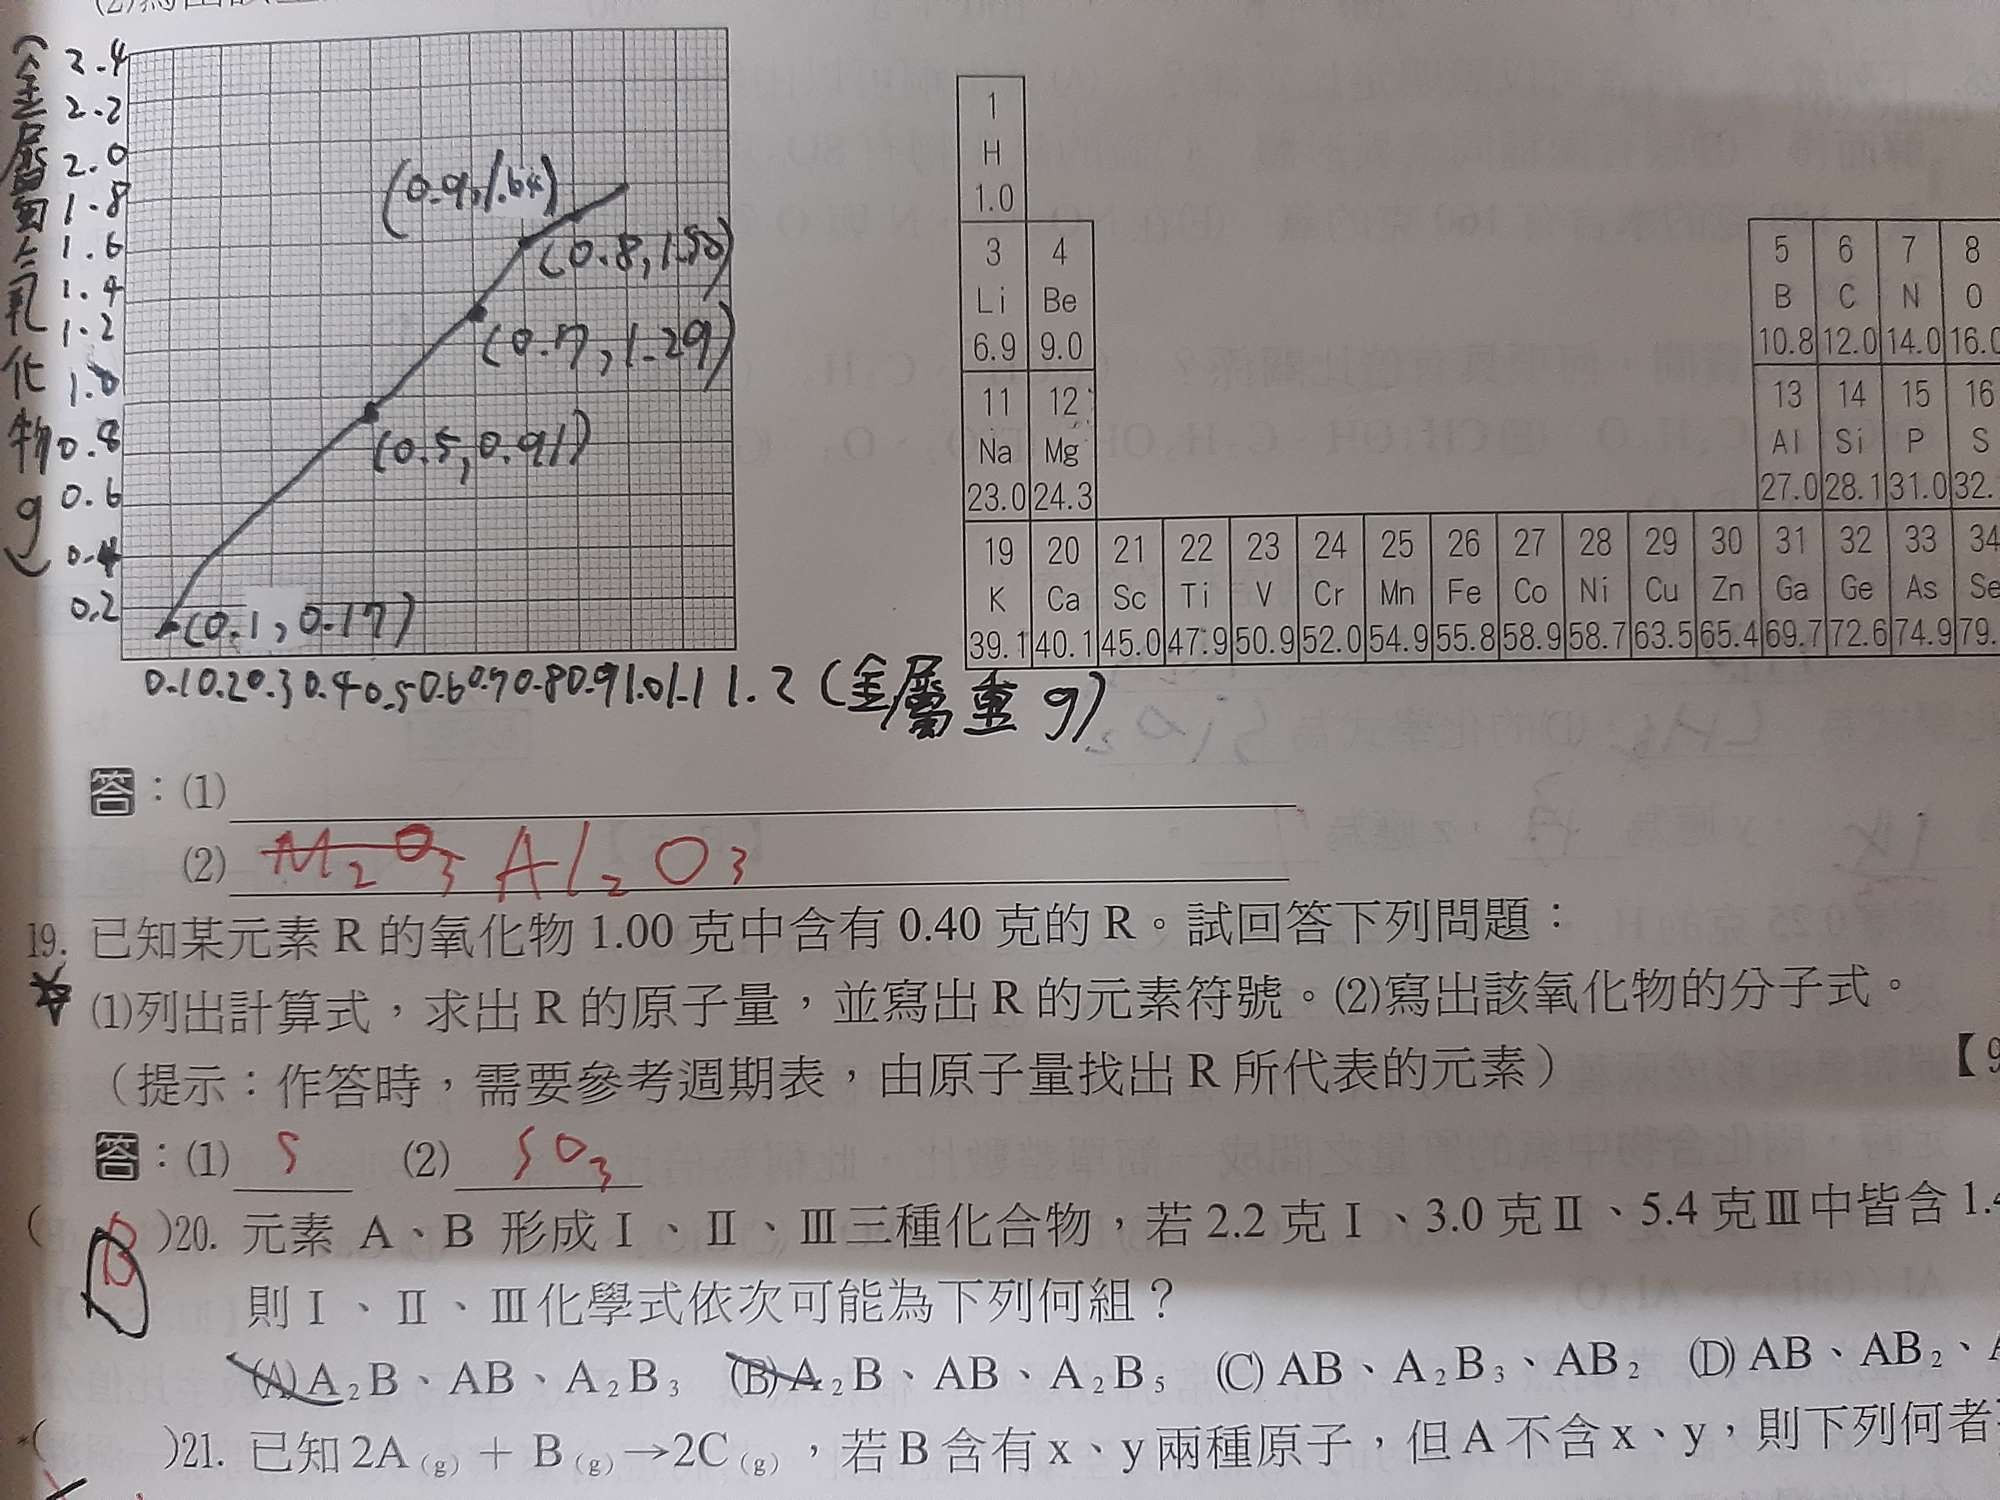 (金屬氧化物g)
2.4
2.2
2.0
1.8
1.6
1.4
1.2
1.0
0.8
0.6
0.4
0.2
(0.9,1.64)
(0.8,1.50)
(0.7,1.29)
(0.5,0.91)
(0.1,0.17)
0.1 0.2 0.3 0.4 0.5 0.6 0.7 0.8 0.9 1.0 1.1 1.2 (金屬重 g)
1
H
1.0
3 4 5 6 7 8
Li Be B C N O
6.9 9.0 10.8 12.0 14.0 16.0
11 12 13 14 15 16
Na Mg Al Si P S
23.0 24.3 27.0 28.1 31.0 32.
19 20 21 22 23 24 25 26 27 28 29 30 31 32 33 34
K Ca Sc Ti V Cr Mn Fe Co Ni Cu Zn Ga Ge As Se
39.1 40.1 45.0 47.9 50.9 52.0 54.9 55.8 58.9 58.7 63.5 65.4 69.7 72.6 74.9 79.
答：(1)
(2) M₂O₃ Al₂O₃
19. 已知某元素 R 的氧化物 1.00 克中含有 0.40 克的 R。試回答下列問題：
(1)列出計算式，求出 R 的原子量，並寫出 R 的元素符號。(2)寫出該氧化物的分子式。
（提示：作答時，需要參考週期表，由原子量找出 R 所代表的元素）
【9
答：(1) S (2) SO₃
( B )20. 元素 A、B 形成Ⅰ、Ⅱ、Ⅲ三種化合物，若 2.2 克Ⅰ、3.0 克Ⅱ、5.4 克Ⅲ中皆含 1.4
則Ⅰ、Ⅱ、Ⅲ化學式依次可能為下列何組？
(A) A₂B、AB、A₂B₃ (B) A₂B、AB、A₂B₅ (C) AB、A₂B₃、AB₂ (D) AB、AB₂、
( )21. 已知 2A₍g₎ ＋ B₍g₎ →2C₍g₎，若 B 含有 x、y 兩種原子，但 A 不含 x、y，則下列何者